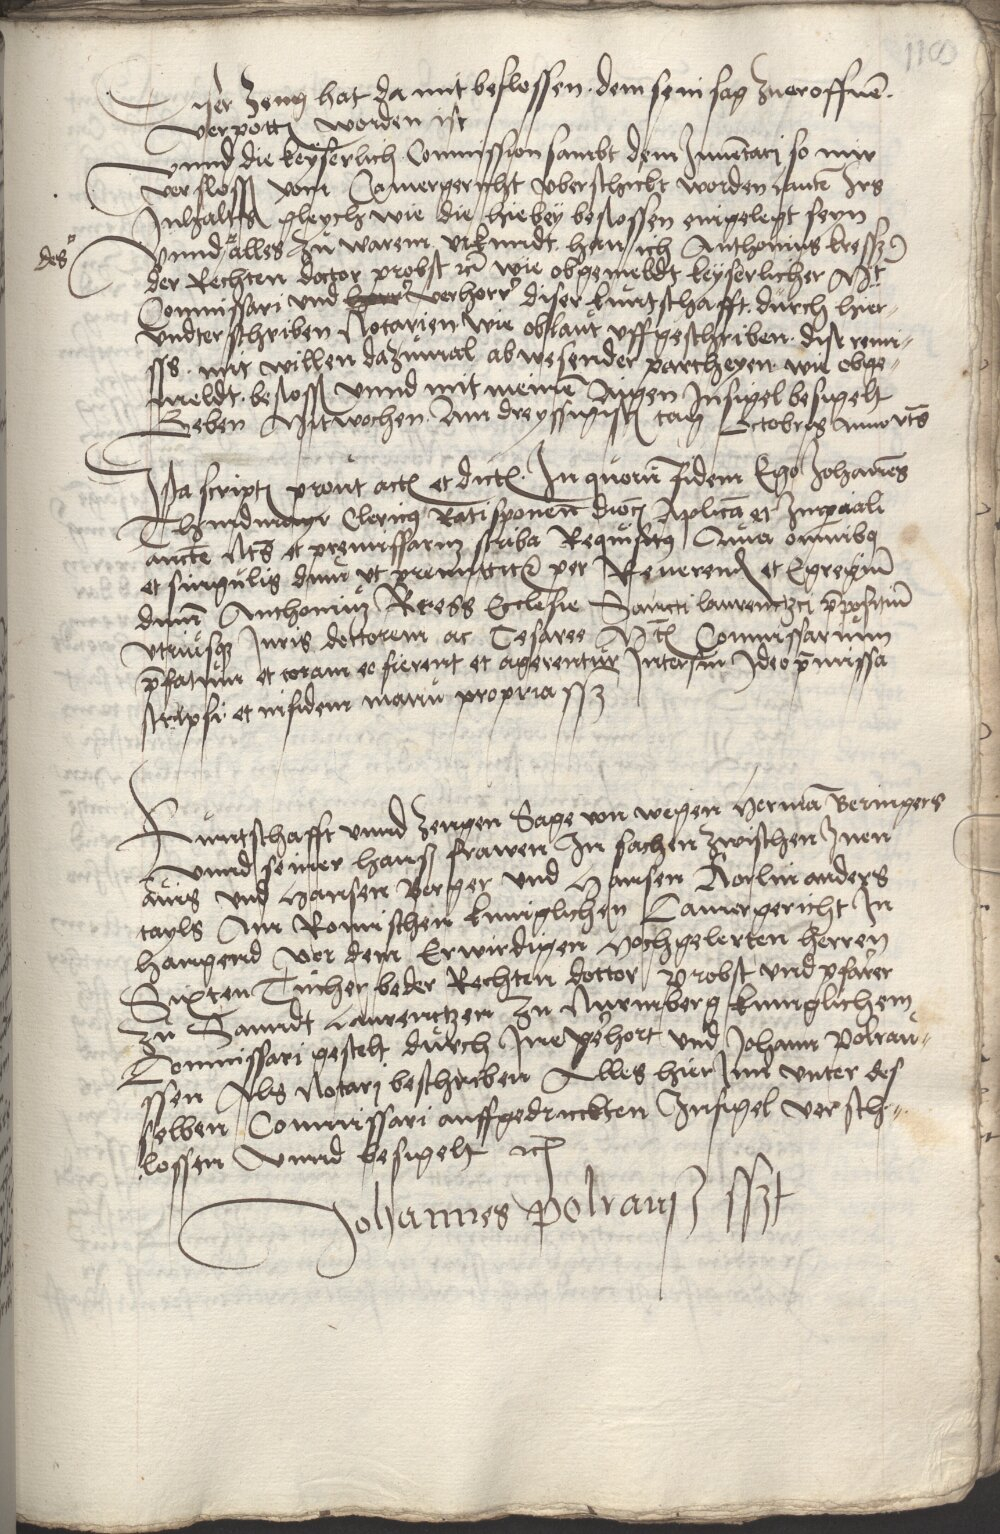 118
Hier Zeug hat da mit beslossen. dem sein sag zueroffnē.
verpottn worden ist
Vnnd die keyserlich Commission sambt dem Inuētari so mir
verslossn vom Camergericht vberschickt worden lautn Irs
Inhaltss gleych wie die hiebey beslossen eingelegt seyn
des
Vnnd alles zu warem vrkundt han ich Anthonius kress
der Rechten doctor probst rc wie obgemeldt keyserlicher Mt
Commissari vnd verhorr diser kuntschafft. durch hier-
vndterschriben Notarien wie oblaut vffgeschriben. dise remi-
ss. mit willen dazumal abwesender partheyen. wie obge-
meldt. besloss vnnd mit meinē Aigen Insigel besigelt
Geben Mitwochen Am dreyssigistn tag Octobris Anno rc
Ista scriptn prout actn et dictn. In quorū fidem Ego Johannes
Clericus Ratisponen dioc Aplica et Imperiali
aucte Nots et premissarum scriba Requisitus Quia omnibus
et singulis dum vt premittitur per Reuerend et Egregium
dnm Anthonium Kress Ecclesie Sancti laurentzi ppositum
vtriusque Juris doctorem ac Cesaree Mtis Commissarium
pfatum et coram eo fierent et agerentur Interfui Ideo pmissa
scripsi et in fidem manu propria ssz
Kuntschafft vnnd Zeugen Sage von wegen Hermā Beringers
vnnd seiner hausz frawen In sachen zwischen Inen
ains vnd Hansen Berger vnd Hansen anders
tayls Am Romischen kuniglichen Camergericht In
hangend vor dem Erwirdigen Hochgelerten herren
Sixten Tucher beder Rechten doctor probst vnd pfarer
zu Sanndt Laurentzen zu Nurmberg kuniglichem
Commissari gestelt durch Ine gehort vnd Johann polrau-
ssen Als Notari beschriben Alles hier Inn vnter des
selben Commissari auffgedruckten Insigel versch-
lossen vnnd besigelt rc
Johannes Polrausz sszt